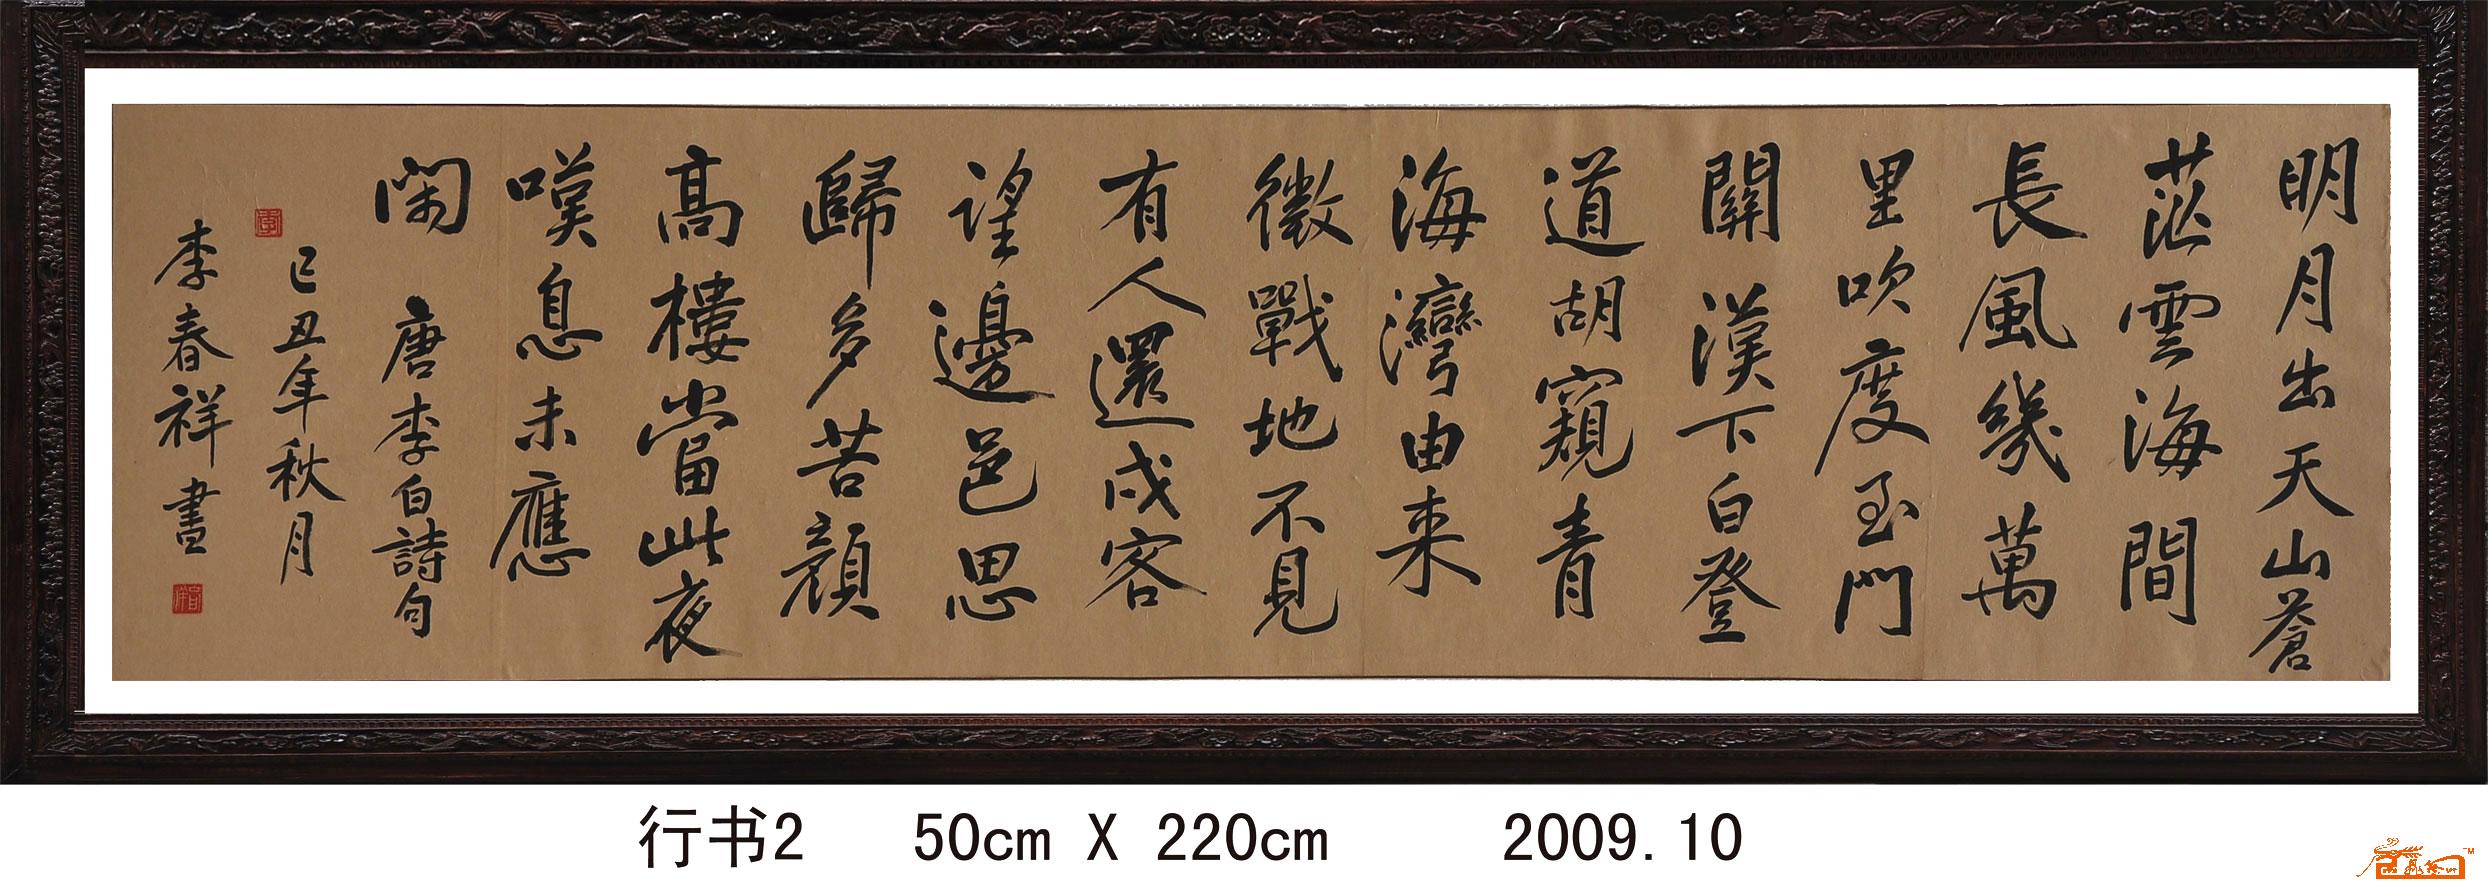 明月出天山蒼
茫雲海間
長風幾萬
里吹度玉門
關漢下白登
道胡窺青
海灣由来
徵戰地不見
有人還戍客
望邊邑思
歸多苦顏
高樓當此夜
嘆息未應
閑 唐李白詩句
己丑年秋月
李春祥書
行书2 50cm X 220cm 2009.10